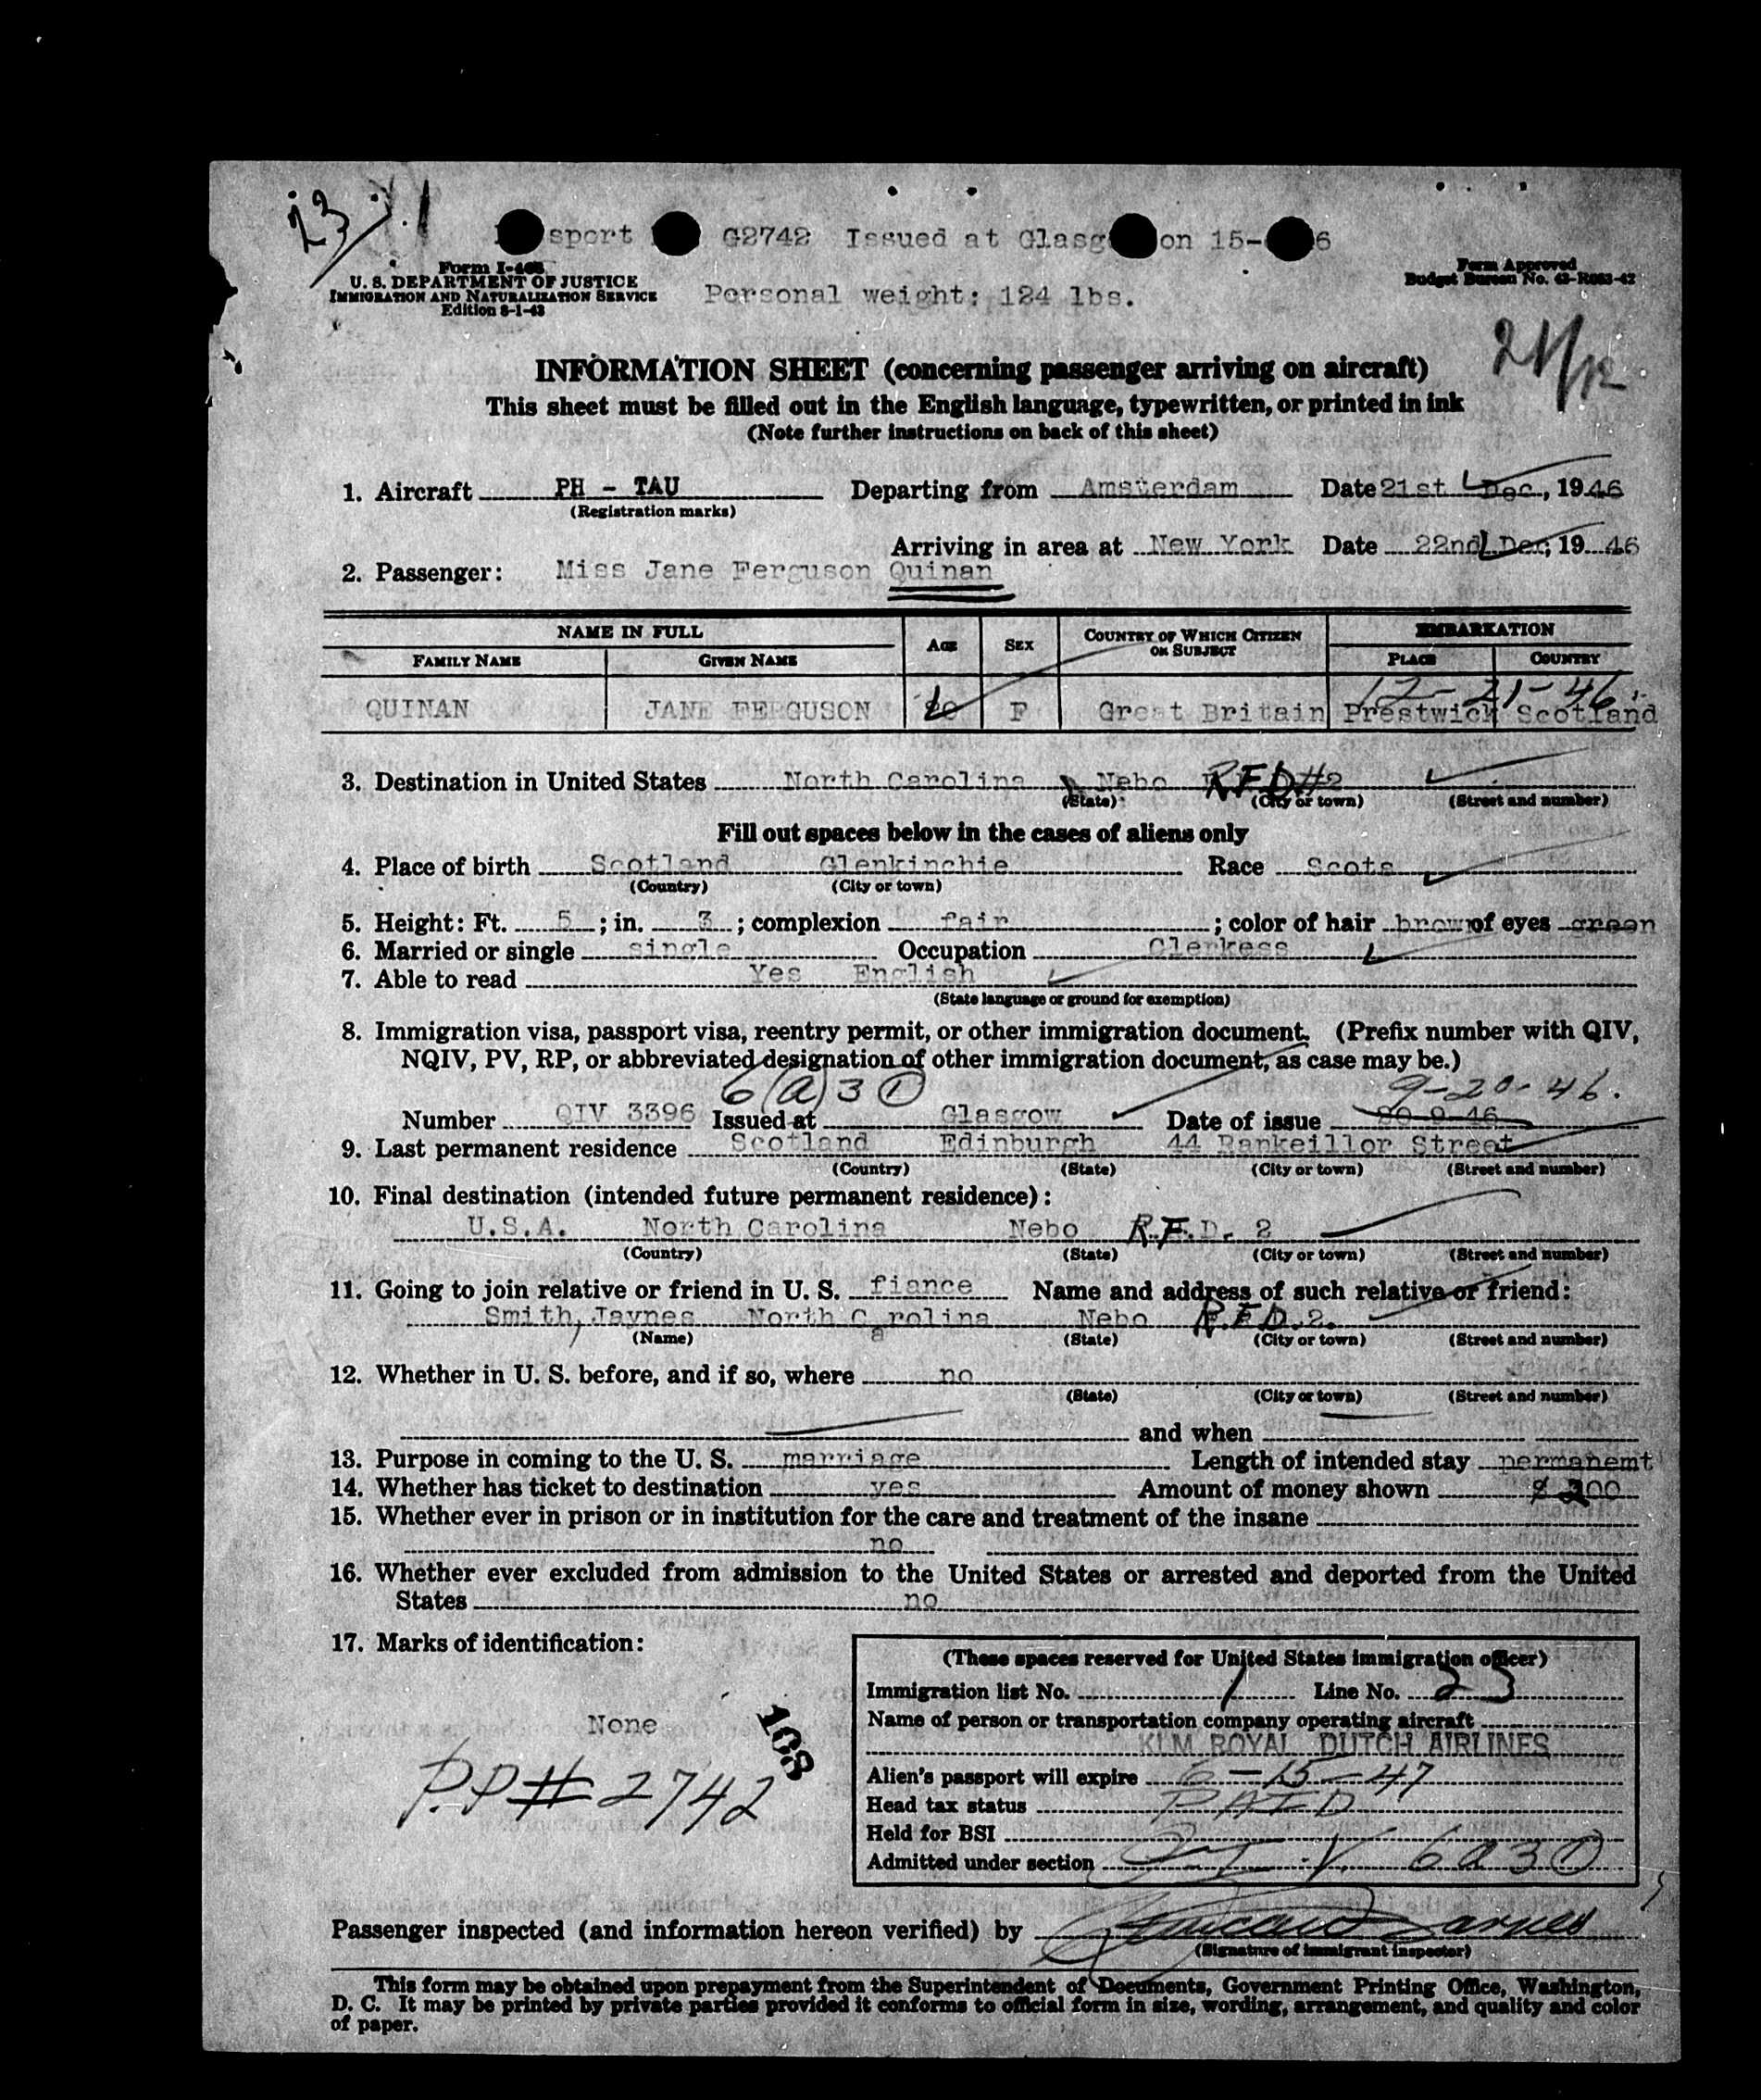 23
sport G2742 Issued at Glasg on 15- 6
Form I-466
U. S. DEPARTMENT OF JUSTICE
IMMIGRATION AND NATURALIZATION SERVICE
Edition 8-1-43
Form Approved
Budget Bureau No.
Personal weight: 124 lbs.
21/12
INFORMATION SHEET (concerning passenger arriving on aircraft)
This sheet must be filled out in the English language, typewritten, or printed in ink
(Note further instructions on back of this sheet)
1. Aircraft PH - TAU Departing from Amsterdam Date 21st Dec., 1946
(Registration marks)
Arriving in area at New York Date 22nd Dec, 19 46
2. Passenger: Miss Jane Ferguson Quinan
NAME IN FULL AGE SEX COUNTRY OF WHICH CITIZEN OR SUBJECT EMBARKATION
FAMILY NAME GIVEN NAME PLACE COUNTRY
12-21-46
QUINAN JANE FERGUSON 20 F Great Britain Prestwick Scotland
3. Destination in United States North Carolina Nebo R.F.D#2
(State) (City or town) (Street and number)
Fill out spaces below in the cases of aliens only
4. Place of birth Scotland Glenkinchie Race Scots
(Country) (City or town)
5. Height: Ft. 5; in. 3; complexion fair; color of hair brown of eyes green
6. Married or single single Occupation Clerkess
7. Able to read Yes English
(State language or ground for exemption)
8. Immigration visa, passport visa, reentry permit, or other immigration document. (Prefix number with QIV,
NQIV, PV, RP, or abbreviated designation of other immigration document, as case may be.)
6(a)3 ① 9-20-46.
Number QIV 3396 Issued at Glasgow Date of issue 20-9-46
9. Last permanent residence Scotland Edinburgh 44 Rankeillor Street
(Country) (State) (City or town) (Street and number)
10. Final destination (intended future permanent residence):
U.S.A. North Carolina Nebo R.F.D. 2
(Country) (State) (City or town) (Street and number)
11. Going to join relative or friend in U. S. fiance Name and address of such relative or friend:
Smith, Jaynes North Carolina Nebo R.F.D.2.
(Name) (State) (City or town) (Street and number)
12. Whether in U. S. before, and if so, where no
(State) (City or town) (Street and number)
and when
13. Purpose in coming to the U. S. marriage Length of intended stay permanemt
14. Whether has ticket to destination yes Amount of money shown $ 200
15. Whether ever in prison or in institution for the care and treatment of the insane
no
16. Whether ever excluded from admission to the United States or arrested and deported from the United
States no
17. Marks of identification:
None
108
P.P# 2742
(These spaces reserved for United States immigration officer)
Immigration list No. 1 Line No. 23
Name of person or transportation company operating aircraft
KLM ROYAL DUTCH AIRLINES
Alien's passport will expire 6-15-47
Head tax status PAID
Held for BSI
Admitted under section QIV 6a3①
Passenger inspected (and information hereon verified) by
(Signature of immigrant inspector)
This form may be obtained upon prepayment from the Superintendent of Documents, Government Printing Office, Washington,
D. C. It may be printed by private parties provided it conforms to official form in size, wording, arrangement, and quality and color
of paper.